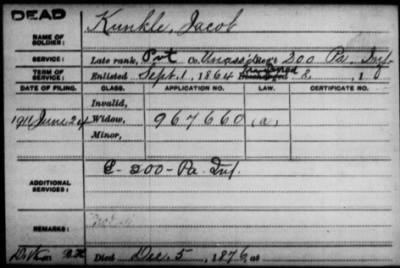 DEAD
NAME OF SOLDIER: Kunkle, Jacob
SERVICE: Late rank, Pvt Co. Unass'd Reg't 200 Pa. Inf.
TERM OF SERVICE: Enlisted Sept. 1, 1864
DATE OF FILING. CLASS. APPLICATION NO. LAW. CERTIFICATE NO.
Invalid,
1911 June 24 Widow, 967660 (a)
Minor,
ADDITIONAL SERVICES: E-200-Pa. Inf.
REMARKS:
Died Dec. 5, 1876, at